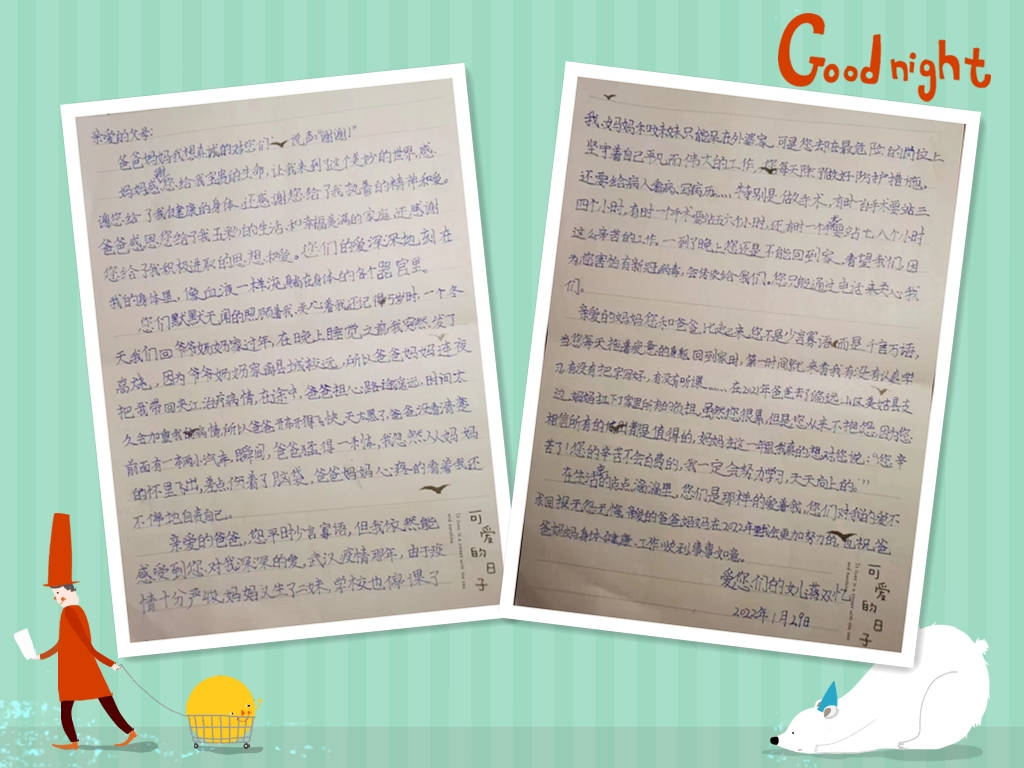 Good night
亲爱的父母:
爸爸妈妈我想真诚的对你们说声“谢谢!”
妈妈感谢您给我宝贵的生命,让我来到这个美妙的世界,感
谢您给了我健康的身体,还感谢您给了我执着的精神和爱。
爸爸感恩您给了我五彩的生活和幸福美满的家庭,还感谢
您给了我积极进取的思想和爱。您们的爱深深地刻在
我的身体里,像血液一样流躺在身体的各个器官里。
您们默默无闻的照顾着我,关心着我还记得5岁时,一个冬
天我们回爷爷奶奶家过年,在晚上睡觉之前我突然发了
高烧,因为爷爷奶奶家离县城较远,所以爸爸妈妈连夜
把我带回夹江治疗病情,在途中,爸爸担心路途遥远,时间太
久会加重我病情,所以爸爸开车开得飞快,天太黑了,爸爸没看清楚
前面有一辆小汽车,瞬间,爸爸猛得一刹,我忽然从妈妈
的怀里飞出,差点伤着了脑袋,爸爸妈妈心疼的看着我还
不停地自责自己。
亲爱的爸爸,您平时少言寡语,但我依然能
感受到您对我深深的爱。武汉疫情那年,由于疫
情十分严峻,妈妈又生了二妹,学校也停课了
可爱的日子
我、妈妈和妹妹只能呆在外婆家,可是您却在最危险的岗位上
坚守着自己平凡而伟大的工作,您每天除了做好防护措施,
还要给病人看病、写病历……特别是做手术,有时一台手术要站三
四个小时,有时一个手术要站五六个小时,还有时一个要站七、八个小时
这么辛苦的工作,一到了晚上您还是不能回到家看望我们,因
为您害怕有新冠病毒,会传染给我们。您只能通过电话来关心我
们。
亲爱的妈妈您和爸爸比起来,您不是少言寡语而是千言万语,
当您每天拖着疲惫的身躯回到家时,第一时间就来看我有没有认真学
习,有没有把字写好,有没有听课……在2021年爸爸去了偏远山区美姑县支
边,妈妈扛下了家里所有的负担,虽然您很累,但是您从来不抱怨,因为您
相信所有的付出都是值得的,妈妈在这一年里我真的想对您说:“您辛
苦了!您的辛苦不会白费的,我一定会努力学习,天天向上的。”
在生活的点点滴滴里,您们是那样的爱着我,您们对我的爱不
求回报无怨无悔,亲爱的爸爸妈妈在2022年我会更加努力的,也祝爸
爸妈妈身体健康、工作顺利、事事如意。
爱您们的女儿蒋双忆
2022年1月29日
可爱的日子